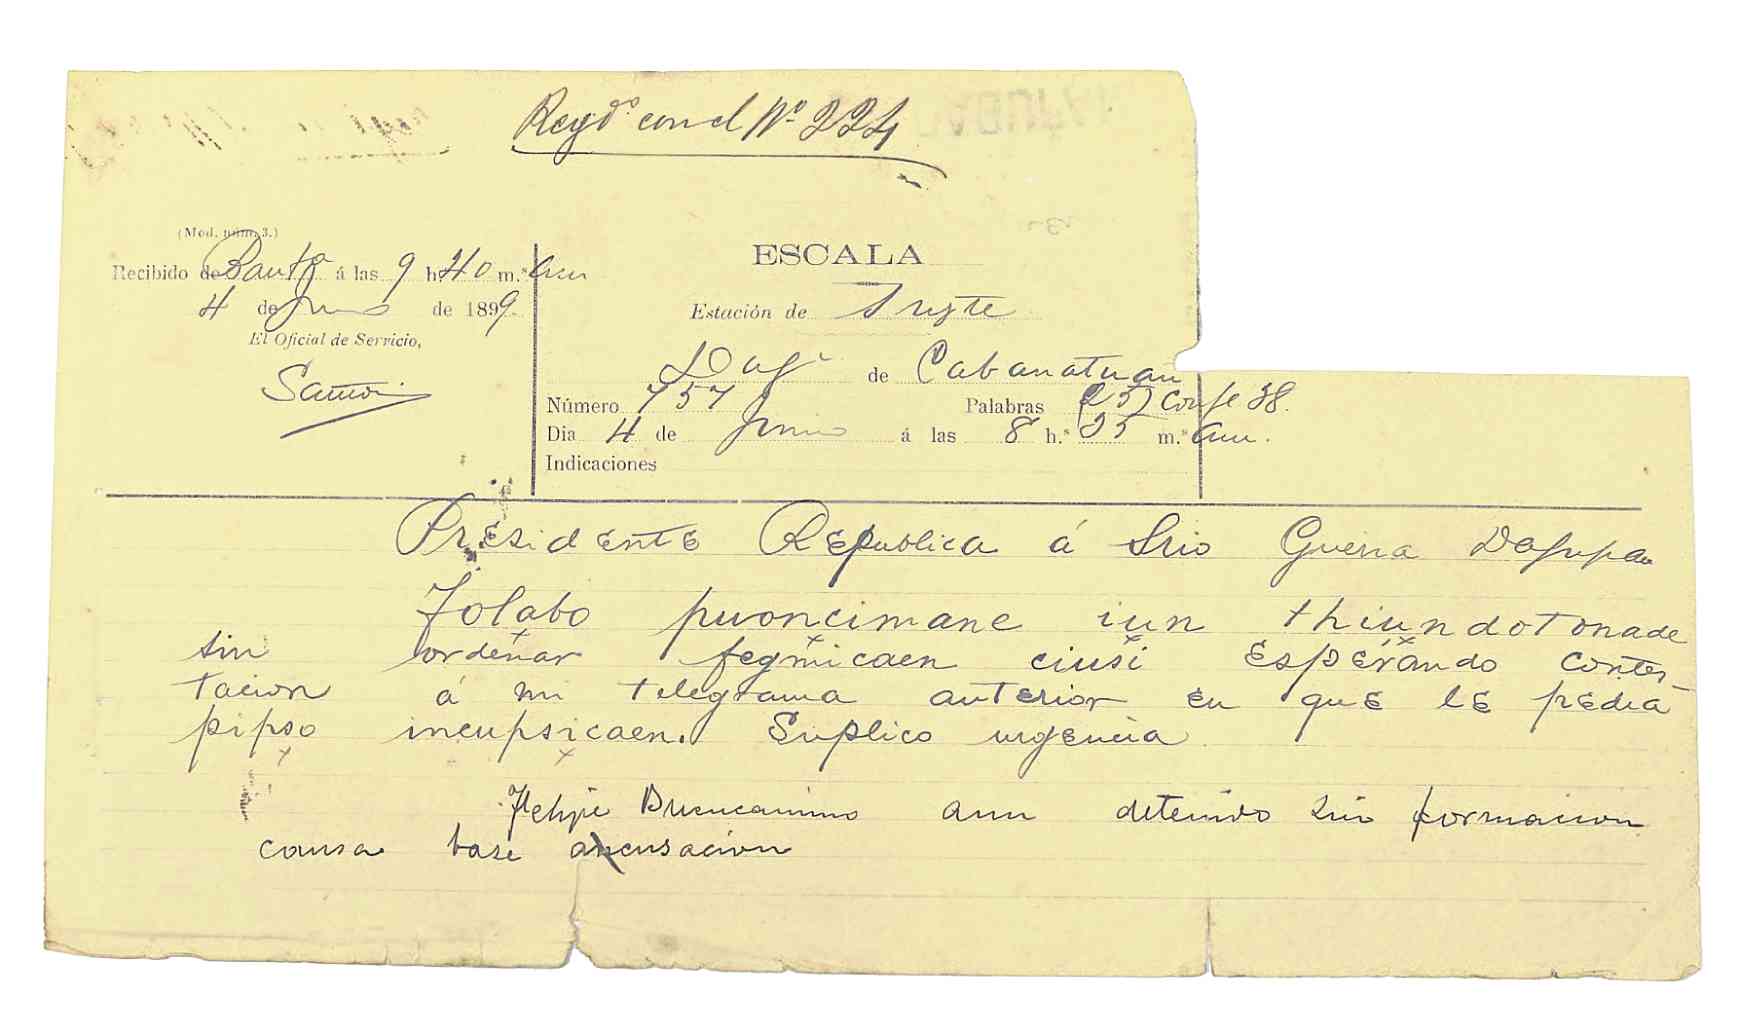 Regdo con el No 224
(Mod. núm. 3.)
Recibido de Bauta á las 9 h. 40 m.s am
4 de Junio de 1899.
El Oficial de Servicio,
ESCALA
Estación de
Dag de Cabanatuan
Número 757 Palabras (25) Confe 38.
Dia 4 de Junio á las 8 h.s 25 m.s am.
Indicaciones
Presidente Republica á Srio Guerra Dagupan
Jolabo puoncimane iun thiundotonade
sin ordenar fegmicaen ciusi esperando contes-
tacion á mi telegrama anterior en que le pedia
pipso incupsicaen. Suplico urgencia
Felipe Buencamino aun detenido sin formacion
causa base acusacion